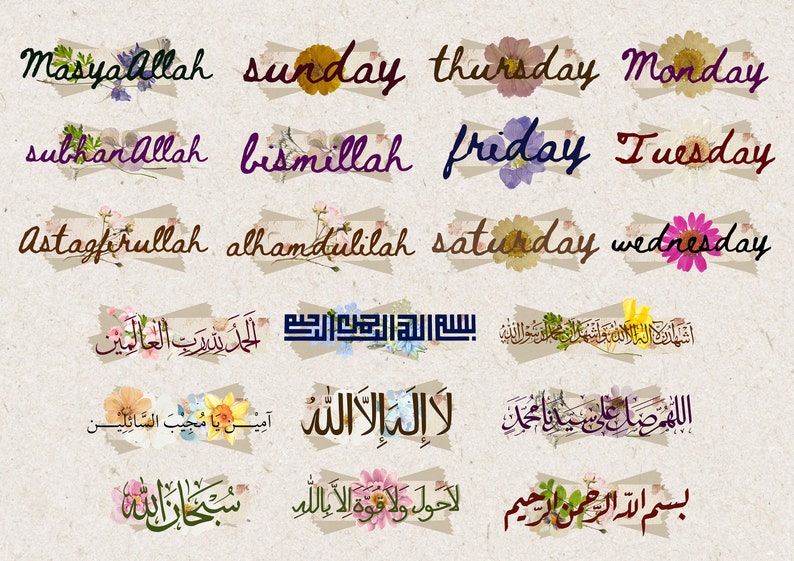 MasyaAllah sunday thursday Monday
subhanAllah bismillah friday Tuesday
Astagfirullah alhamdulilah saturday wednesday
الحمد لله رب العالمين بسم الله الرحمن الرحيم اشهد ان لا اله الا الله و اشهد ان محمد رسول الله
آمِيْن يَا مُجِيْبَ السَّائِلِيْن لا إله إلا الله اللهم صل على سيدنا محمد
سُبْحَانَ الله لا حول ولا قوة إلا بالله بسم الله الرحمن الرحيم